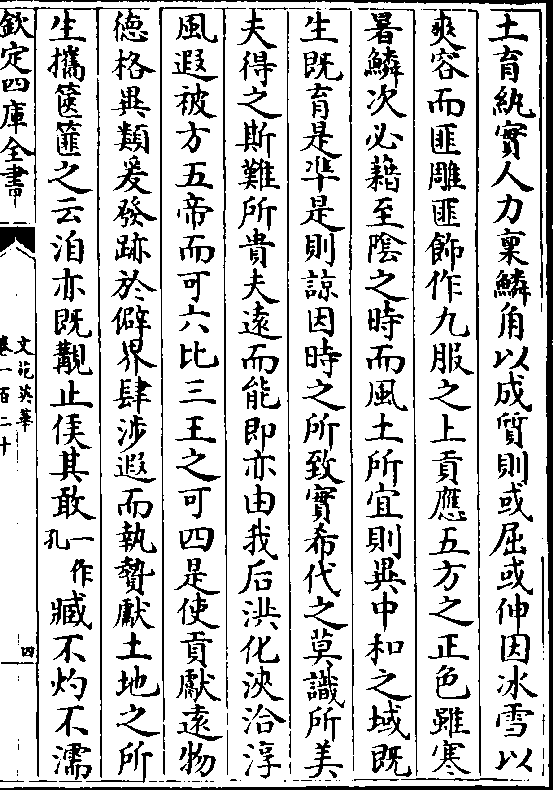 土育紈實人力稟鱗角以成質則或屈或伸因冰雪以
爽容而匪雕匪飾作九服之上貢應五方之正色雖寒
暑鱗次必藉至陰之時而風土所宜則異中和之域既
生既育是準是則諒因時之所致實希代之莫識所美
夫得之斯難所貴夫遠而能即亦由我后洪化浹洽淳
風遐被方五帝而可六比三王之可四是使貢獻遠物
德格異類爰發跡於僻界肆涉遐而執贄獻土地之所
生攜篋篚之云洎亦既覯止俟其敢一作孔臧不灼不濡
欽定四庫全書
文苑英華
卷一百二十
四